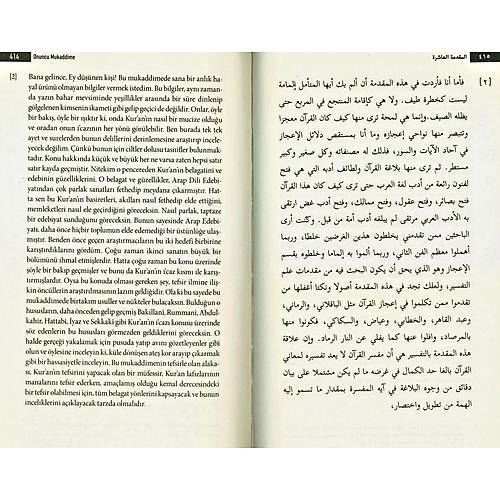 414 Onuncu Mukaddime
[2] Bana gelince, Ey düşünen kişi! Bu mukaddimede sana bir anlık ha-
yal ürünü olmayan bilgiler vermek istedim. Bu bilgiler, aynı zaman-
da yazın bahar mevsiminde yeşillikler arasında bir süre dinlenip
gölgelenen kimsenin ikameti gibi gelip geçici de değildir. Onlar, öyle
bir bakış, öyle bir ışıktır ki, onda Kur'an'ın nasıl bir mucize olduğu
ve oradan onun i'cazının her yönü görülebilir. Ben burada tek tek
ayet ve surelerden bunun delillerini derinlemesine araştırıp incele-
yecek değilim. Çünkü bunun için ciltler dolusu tasnifler bulunmak-
tadır. Konu hakkında küçük ve büyük her ne varsa zaten hepsi satır
satır kayda geçmiştir. Nitekim o pencereden Kur'an'ın belagatini ve
edebinin güzelliklerini. O belagat ve güzellikler, Arap Dili Edebi-
yatından çok parlak sanatları fethedip meydana çıkarmıştır. Hat-
ta sen bu Kur'an'ın basiretleri, akılları nasıl fethedip elde ettiğini,
memleketleri nasıl ele geçirdiğini göreceksin. Nasıl parlak, taptaze
bir edebiyat sunduğunu göreceksin. Kur'an'ın Arap Edebi-
yatı, daha önce hiçbir toplumun elde edemediği bir üstünlüğe ulaş-
mıştır. Benden önce geçen araştırmacıların bu iki hedefi birbirine
karıştırdıklarını gördüm. Çoğu zaman ikinci sanatın büyük bir
bölümünü ihmal etmişlerdir. Hatta çoğu zaman bu konu üzerinde
şöyle bir bakıp geçmişler ve bunu da Kur'an'ın i'caz kısmı ile karış-
tırmışlardır. Oysa bu konuda olması gereken şey, tefsir ilmine iliş-
kin öncüllerin araştırılmasının lazım geldiğidir. Ola ki bu sayede bu
mukaddimede birtakım usuller ve nükteler bulacaksın. Bulduğun o
hususların, daha önce gelip geçmiş Bakıllani, Rummani, Abdul-
kahir, Hattabi, Iyaz ve Sekkaki gibi Kur'an'ın i'cazı konusu üzerinde
söz edenlerin bu hususları görmezden geldiklerini göreceksin. O
halde gerçeği yakalamak için pusuda yatıp avını gözetleyenler gibi
olun ve öylesine inceleyin ki, küle dönüşen ateş kor arayıp çıkarmak
gibi bir hassasiyetle inceleyin. Bu mukaddimenin tefsirle olan alaka-
sı, Kur'an'ın tefsirini yapacak olan bir müfessir, Kur'an lafızlarının
manalarını tefsir ederken, amaçlamış olduğu kemal derecesindeki
bir tefsir olabilmesi için, tüm belagat yönlerini kapsayacak ve bunun
inceliklerini açıklayacak tarzda olmalıdır.
المقدمة العاشرة ٤١٥
[٢] فأما أنا فأردت في هذه المقدمة أن ألم بك أيها المتأمل إلمامة
ليست كخطرة طيف. ولا هي كإقامة المنتجع في المربع حتى
يظله الصيف. وإنما هي لمحة ترى منها كيف كان القرآن معجزا
وتتبصر منها نواحي إعجازه وما أنا بمستقص دلائل الإعجاز
في آحاد الآيات والسور، فذلك له مصنفاته وكل صغير وكبير
مستطر. ثم ترى منها بلاغة القرآن ولطائف أدبه التي هي فتح
لفنون رائعة من أدب لغة العرب حتى ترى كيف كان هذا القرآن
فتح بصائر، وفتح عقول، وفتح ممالك، وفتح أدب غض ارتقى
به الأدب العربي مرتقى لم يبلغه أدب أمة من قبل. وكنت أرى
الباحثين ممن تقدمني يخلطون هذين الغرضين خلطا، وربما
أهملوا معظم الفن الثاني، وربما ألموا به إلماما وخلطوه بقسم
الإعجاز وهو الذي يحق أن يكون البحث فيه من مقدمات علم
التفسير، ولعلك تجد في هذه المقدمة أصولا ونكتا أغفلها من
تقدموا ممن تكلموا في إعجاز القرآن مثل الباقلاني، والرماني،
وعبد القاهر، والخطابي، وعياض، والسكاكي، فكونوا منها
بالمرصاد، وافلوا عنها كما يفلي عن النار الرماد. وإن علاقة
هذه المقدمة بالتفسير هي أن مفسر القرآن لا يعد تفسيره لمعاني
القرآن بالغا حد الكمال في غرضه ما لم يكن مشتملا على بيان
دقائق من وجوه البلاغة في آيه المفسرة بمقدار ما تسمو إليه
الهمة من تطويل واختصار،